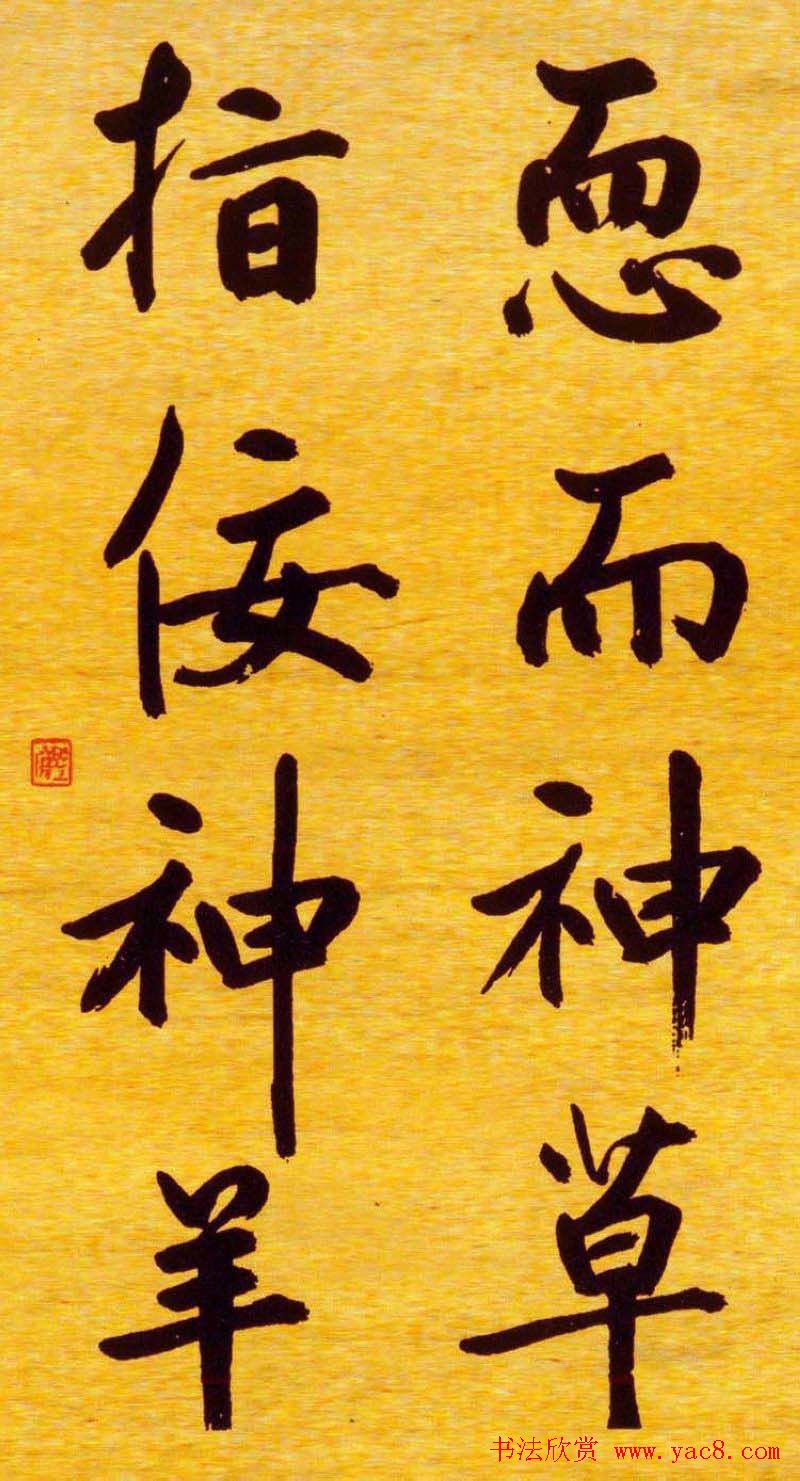 而神草
指佞神羊
书法欣赏 www.yac8.com